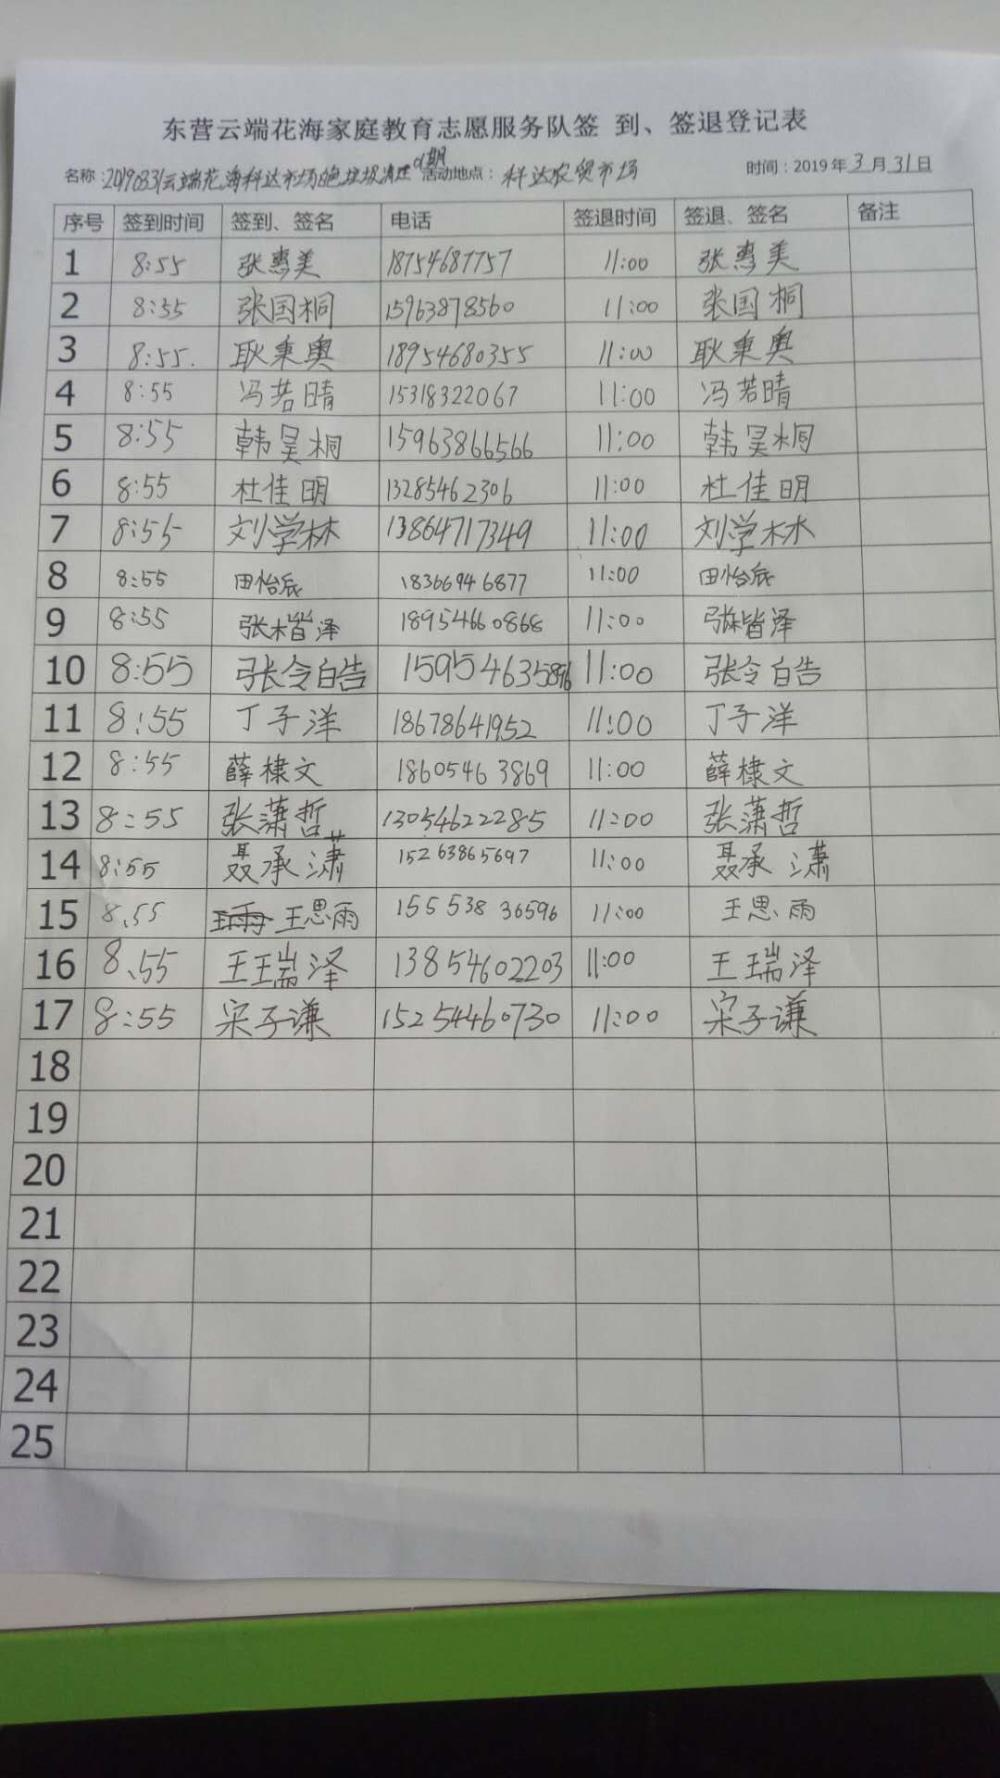 东营云端花海家庭教育志愿服务队签 到、签退登记表
名称：20190331云端花海科达市场 垃圾清理 期 活动地点：科达农贸市场 时间：2019年3月31日
序号 签到时间 签到、签名 电话 签退时间 签退、签名 备注
1 8:55 张惠美 18754687757 11:00 张惠美
2 8:55 张国桐 15963878560 11:00 张国桐
3 8:55. 耿秉奥 18954680355 11:00 耿秉奥
4 8:55 冯若晴 15318322067 11:00 冯若晴
5 8:55 韩昊桐 15963866566 11:00 韩昊桐
6 8:55 杜佳明 13285462306 11:00 杜佳明
7 8:55 刘学林 13864717349 11:00 刘学林
8 8:55 田怡辰 18366946877 11:00 田怡辰
9 8:55 张楷泽 18954660868 11:00 张楷泽
10 8:55 张令皓 11:00 张令皓
11 8:55 丁子洋 18678641952 11:00 丁子洋
12 8:55 薛棣文 18605463869 11:00 薛棣文
13 8:55 张潇哲 13054622285 11:00 张潇哲
14 8:55 聂承潇 15263865697 11:00 聂承潇
15 8、55 王思雨 15553836596 11:00 王思雨
16 8、55 王瑞泽 13854602203 11:00 王瑞泽
17 8:55 宋子谦 15254460730 11:00 宋子谦
18
19
20
21
22
23
24
25